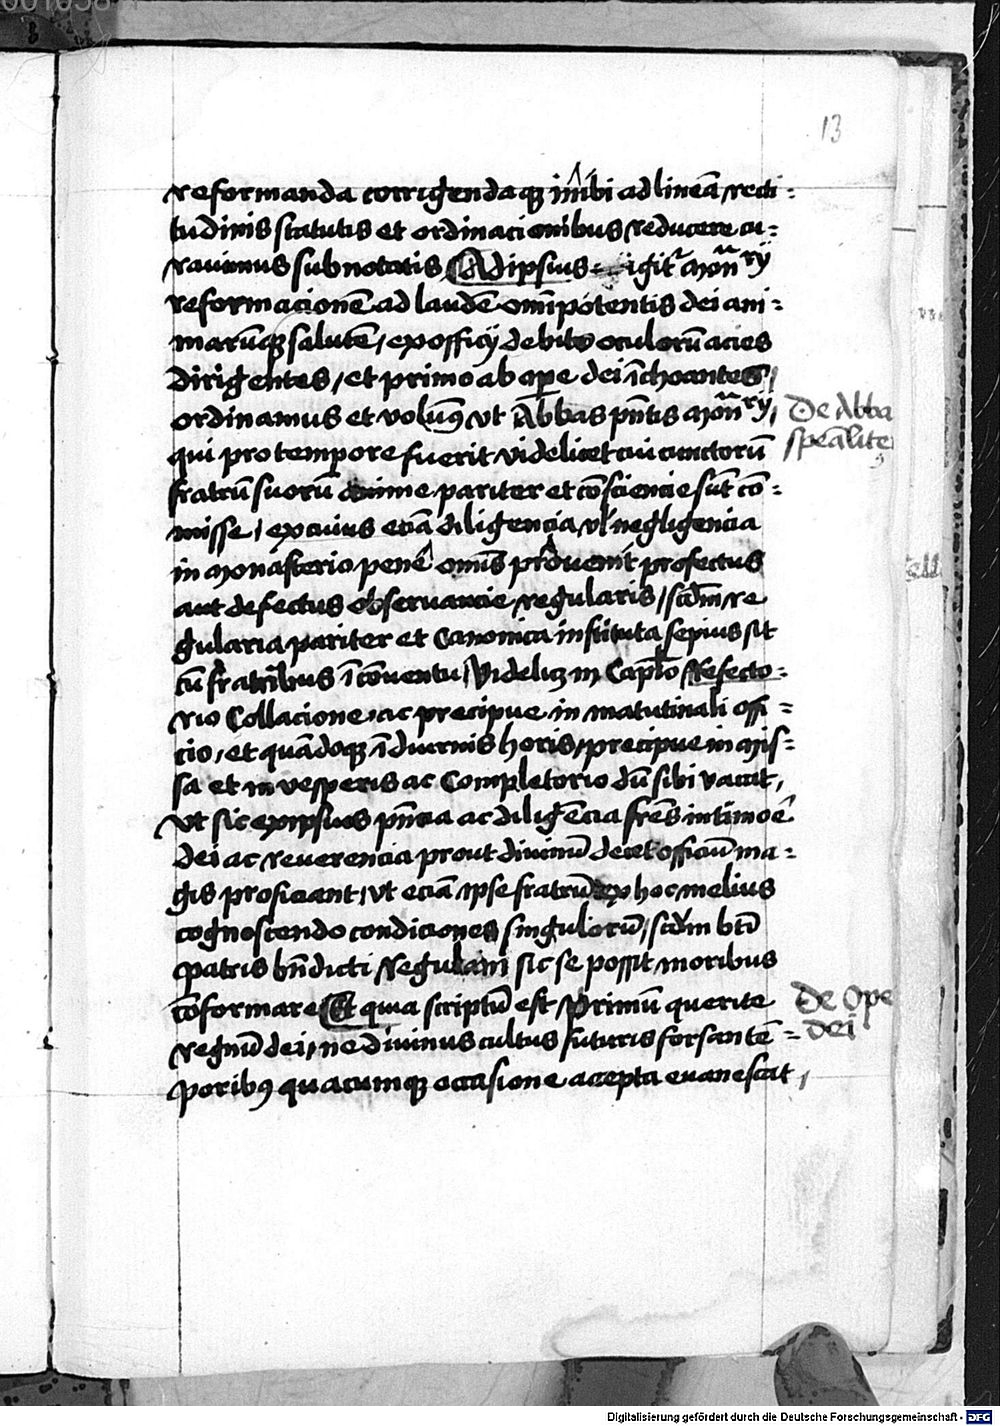 13
reformanda corrigendaqꝫ inibi ad lineā recti-
tudinis statutis et ordinacionibus reducere cu-
rauimus subnotatis Ad ipsius igit᷑ mōn̄rij
reformacionē ad laudē om̄ipotentis dei ani-
marūqꝫ salutē / ex officij debito oculorū acies
dirigentes / et primo ab oꝑe dei īchoantes /
ordinamus et volumꝯ vt Abbas pn̄tis mōn̄rij /
De Abba
speālite
qui pro tempore fuerit videlicet cui cunctorū
fratrū suorū anime pariter et cōsciencie sūt cō-
misse / ex cuius eciā diligencia vl̕ negligencia
in monasterio pene om̄is prouenit profectus
aut defectus obseruancie regularis / scd̄m re
gularia pariter et Canonica instituta sepius sit
cū fratribus ī cōuentu / Videlicꝫ in Capl̄o Refecto-
rio Collacione ac precipue in matutinali offi-
cio / et quādoqꝫ ī diurnis horis / precipue in mis-
sa et in vesperis ac Completorio dū sibi vacat /
vt sic ex ipsius pn̄cia ac diligēcia fr̄es in timoē
dei ac reuerencia prout diuinū decet officiū ma-
gis proficiant / vt eciam ipse fratrū ex hoc melius
cognoscendo condiciones singulorū / scd̄m bt̄i
patris bn̄dicti Regulam sic se possit moribus
cōformare Et quia scriptū est Primū querite
De Ope
dei
regnū dei / ne diuinus cultus futuris forsan tē-
poribꝯ quacumqꝫ occasione accepta euanescat /
Digitalisierung gefördert durch die Deutsche Forschungsgemeinschaft - DFG